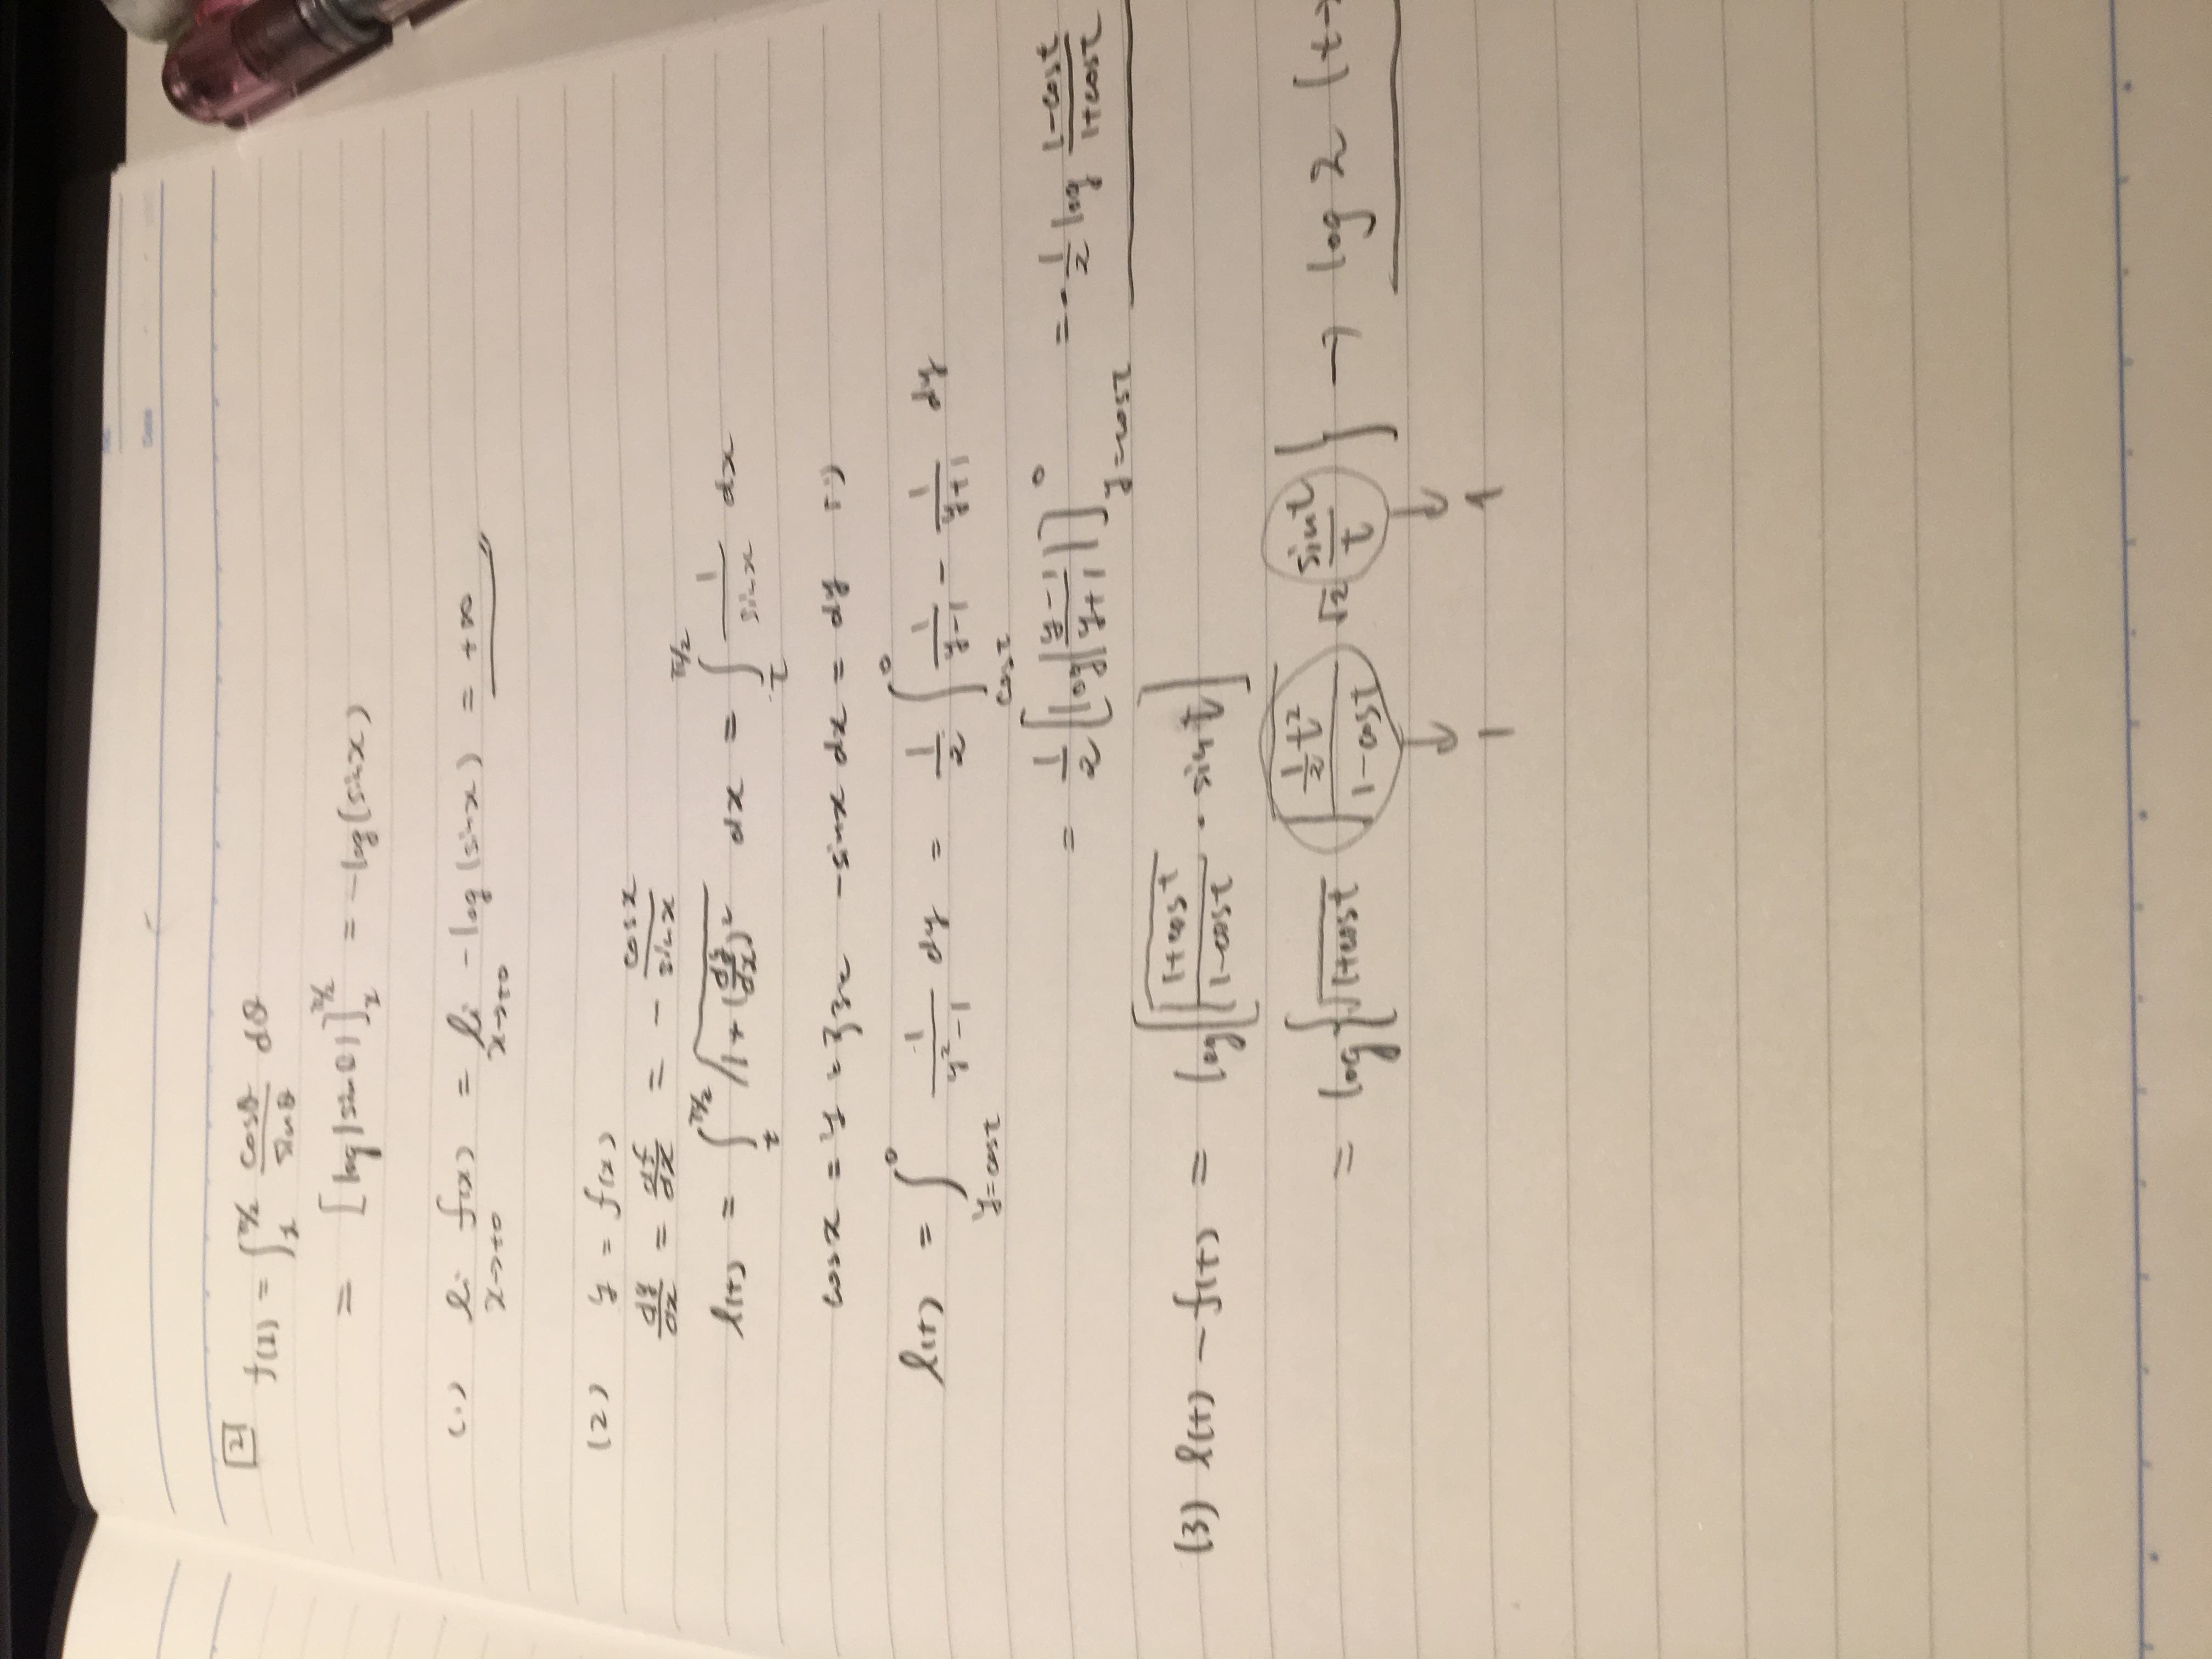 2 f(x) = ∫_x^{π/2} cosθ/sinθ dθ
= [log|sinθ|]_x^{π/2} = -log(sinx)
(1) li_{x→+0} f(x) = li_{x→+0} -log(sinx) = +∞
(2) y = f(x)
dy/dx = df/dx = - cosx/sinx
l(t) = ∫_t^{π/2} √(1+(dy/dx)²) dx = ∫_t^{π/2} 1/sinx dx
cosx = y とすると -sinx dx = dy より
l(t) = ∫_{y=cost}^0 1/(y²-1) dy = 1/2 ∫_{cost}^0 1/(y-1) - 1/(y+1) dy
= 1/2 [log|(y-1)/(y+1)|]_{y=cost}^0 = -1/2 log (1-cost)/(1+cost)
(3) l(t) - f(t) = log{√((1+cost)/(1-cost)) · sint}
= log{√(1+cost) √((1/2 t²)/(1-cost)) √2 sint/t} → log 2 (t→
↓ 1 ↓ 1